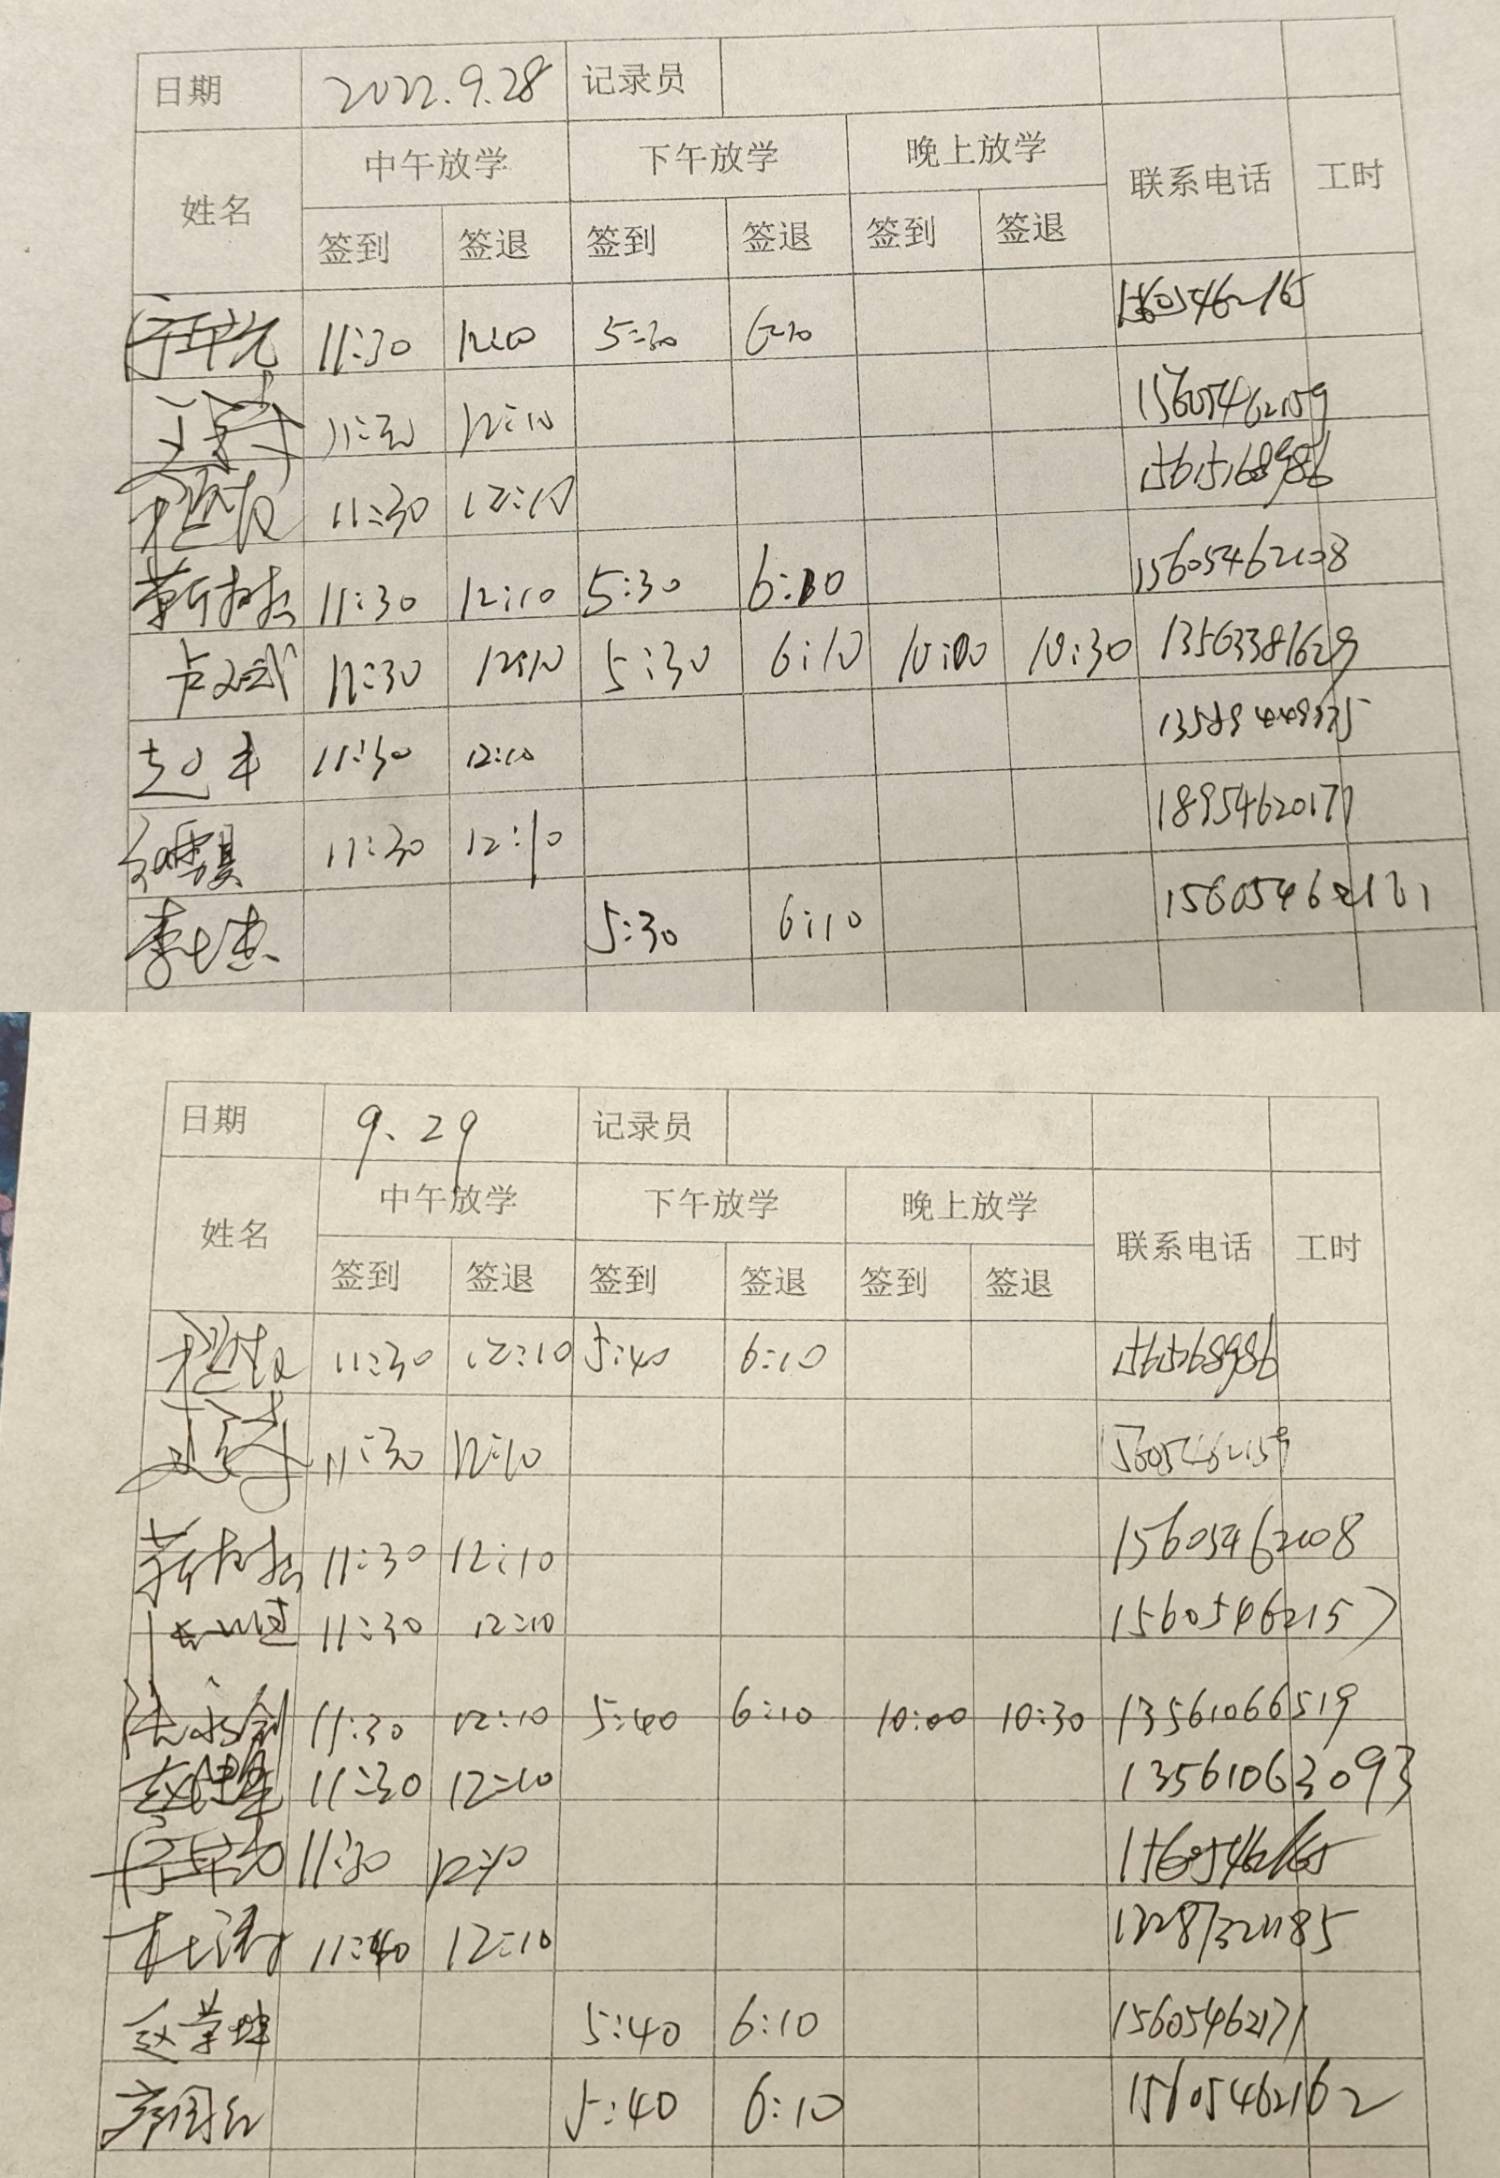 日期 2022.9.28 记录员
中午放学 下午放学 晚上放学
姓名 联系电话 工时
签到 签退 签到 签退 签到 签退
11:30 12:10 5:30 6:10 15605462165
11:30 12:10 15605462159
11:30 12:10 15615168986
靳 11:30 12:10 5:30 6:10 15605462108
卢文武 11:30 12:10 5:30 6:10 10:00 10:30 13563381629
赵丰 11:30 12:10
11:30 12:10 18954620177
李士杰 5:30 6:10 15605462161
日期 9.29 记录员
中午放学 下午放学 晚上放学
姓名 联系电话 工时
签到 签退 签到 签退 签到 签退
11:30 12:10 5:40 6:10
11:30 12:10 15605462159
靳 11:30 12:10 15605462108
11:30 12:10 15605462157
张永剑 11:30 12:10 5:40 6:10 10:00 10:30 13561066519
11:30 12:10 13561063093
11:30 12:10 15605462165
杜涛 11:40 12:10
赵学坤 5:40 6:10 15605462171
5:40 6:10 15605462162